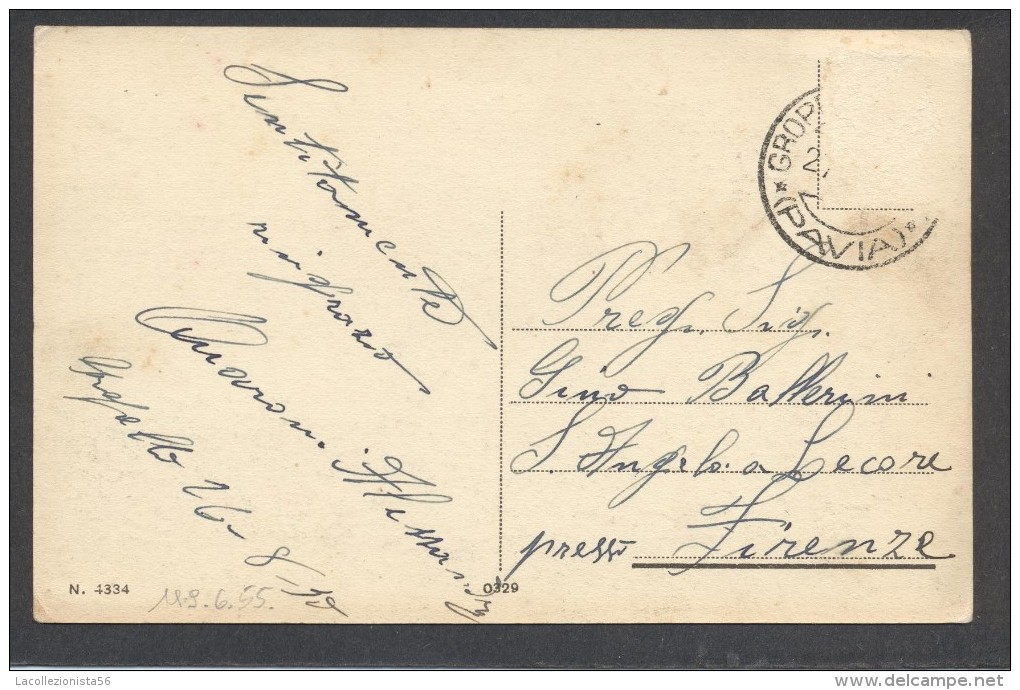 Sentitamente
ringrazio
Maroni Alessandro
Gropello 26-8-
GROP
2
(PAVIA)
Preg. Sig.
Gino Ballerini
S. Angelo a Lecore
presso Firenze
N. 4334
0329
Lacollezionista56
www.delcampe.net